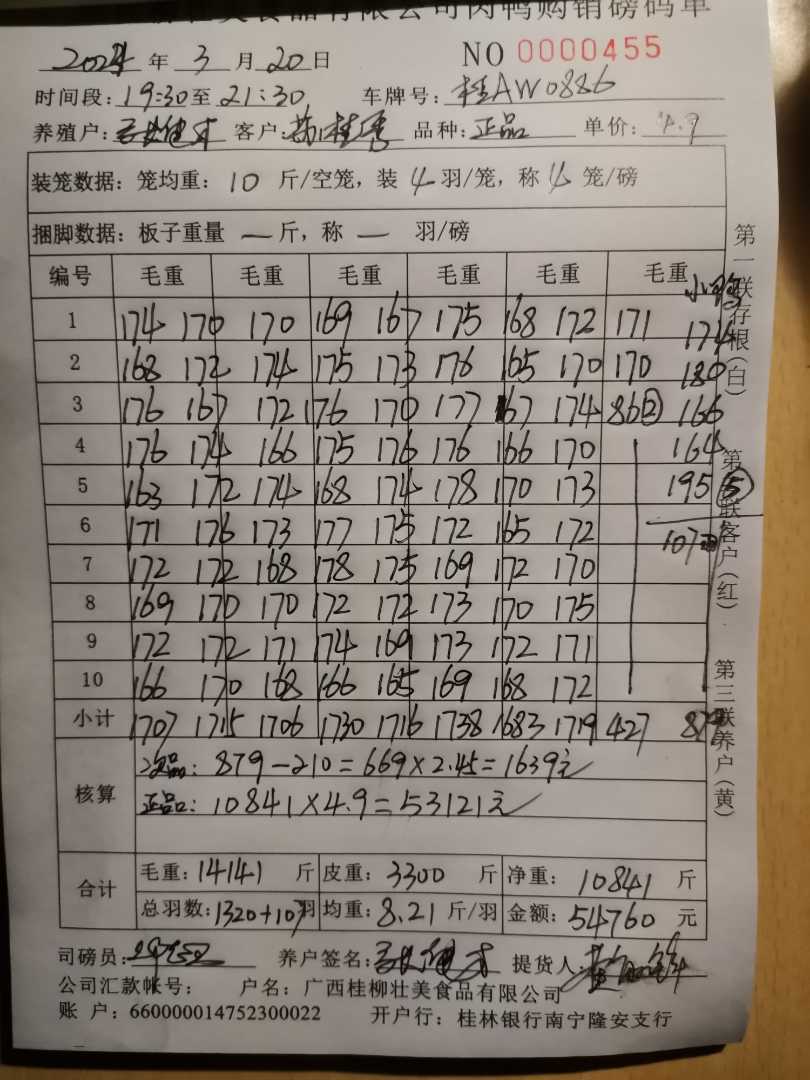 壮美食品有限公司肉鸭购销磅码单
2024 年 3 月 20 日 NO 0000455
时间段: 19:30 至 21:30 车牌号: 桂AW0886
养殖户: 客户: 桂秀 品种: 正品 单价: 4.9
装笼数据: 笼均重: 10 斤/空笼, 装 4 羽/笼, 称 4 笼/磅
捆脚数据: 板子重量 一 斤, 称 一 羽/磅
编号 毛重 毛重 毛重 毛重 毛重 毛重
小鸭
1 174 170 170 169 167 175 168 172 171 174
2 168 172 174 175 173 176 165 170 170 180
3 176 167 172 176 170 177 167 174 86② 166
4 176 174 166 175 176 176 166 170 164
5 163 172 174 168 174 178 170 173 195⑤
6 171 176 173 177 175 172 165 172 107羽
7 172 172 168 178 175 169 172 170
8 169 170 170 172 172 173 170 175
9 172 172 171 174 169 173 172 171
10 166 170 168 166 165 169 168 172
小计 1707 1715 1706 1730 1716 1738 1683 1719 427 879
核算
次品: 879-210=669×2.45=1639元
正品: 10841×4.9=53121元
合计
毛重: 14141 斤 皮重: 3300 斤 净重: 10841 斤
总羽数: 1320+107羽 均重: 8.21 斤/羽 金额: 54760 元
司磅员: 养户签名: 提货人
公司汇款帐号: 户名: 广西桂柳壮美食品有限公司
账 户: 660000014752300022 开户行: 桂林银行南宁隆安支行
第一联存根(白)
第二联客户(红)
第三联养户(黄)